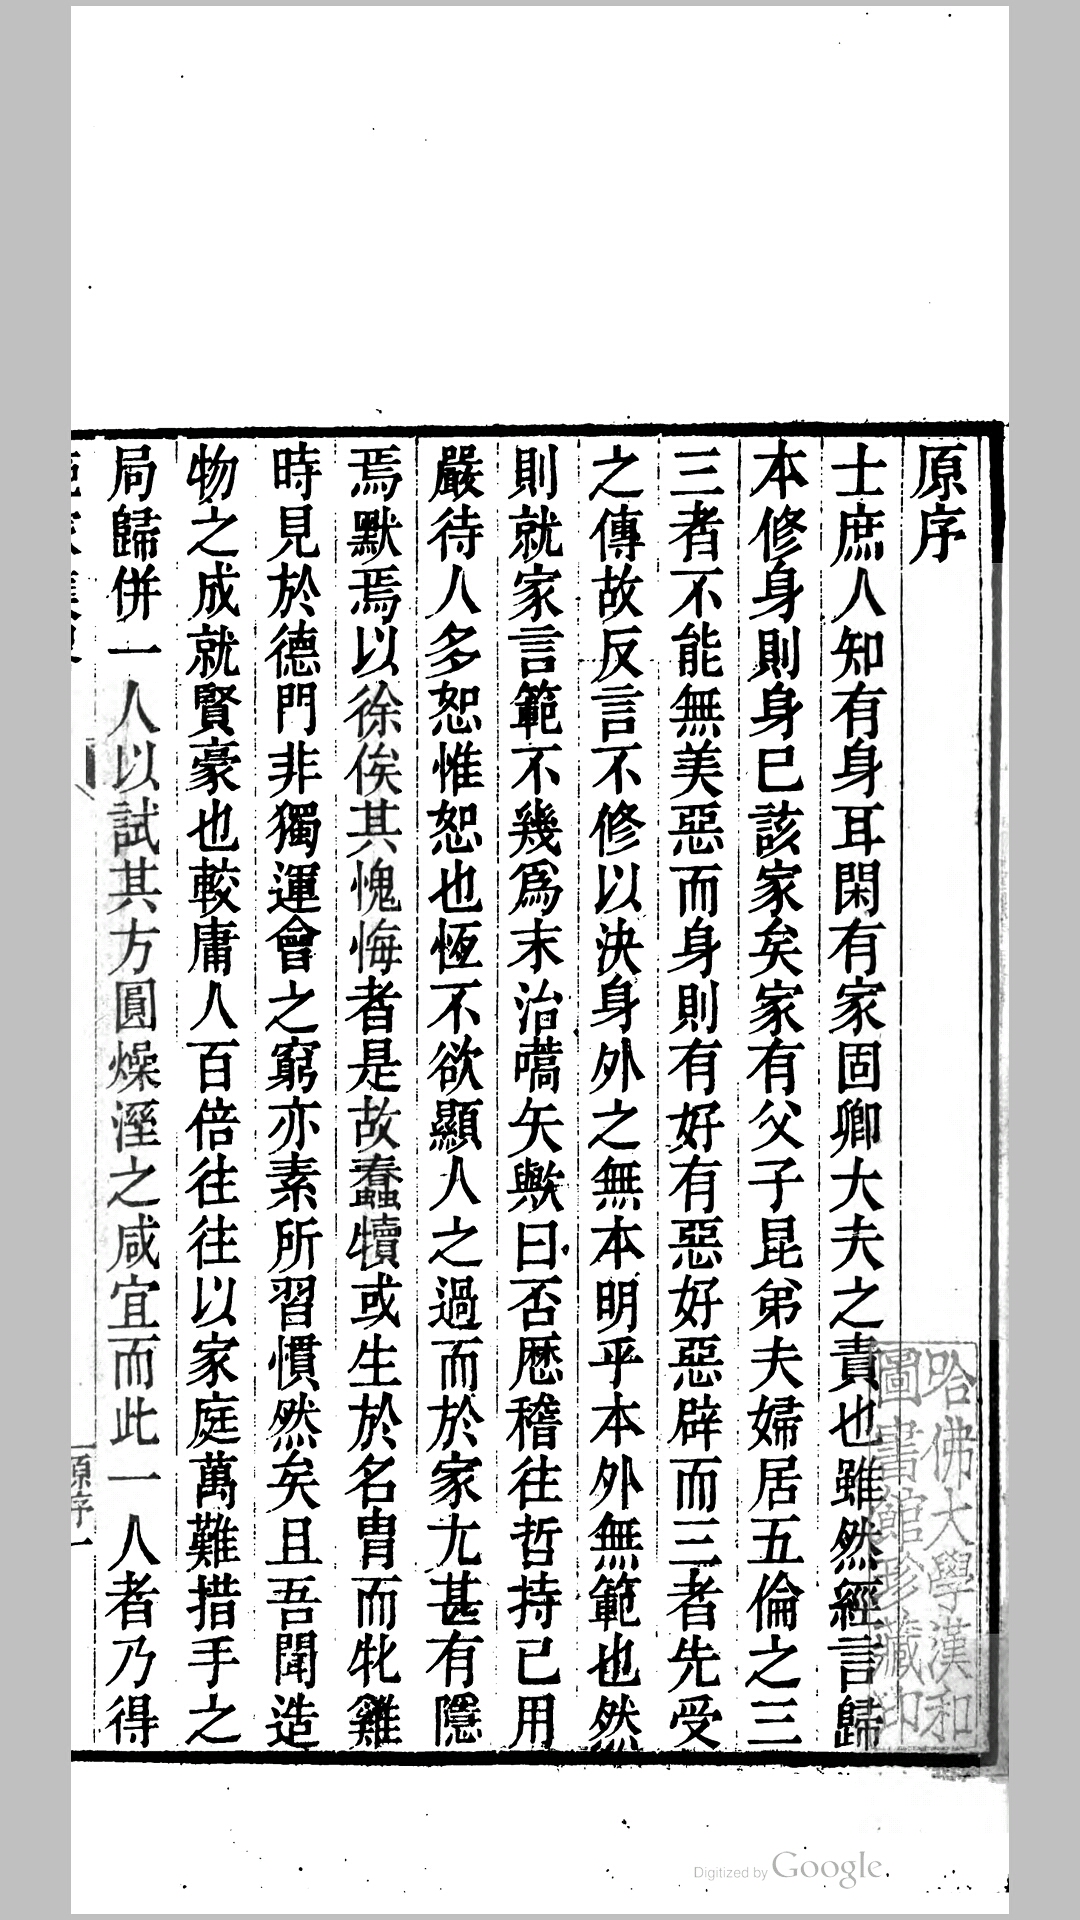 原序
士庶人知有身耳閑有家固卿大夫之責也雖然經言歸
本修身則身已該家矣家有父子昆弟夫婦居五倫之三
三者不能無美惡而身則有好有惡好惡辟而三者先受
之傳故反言不修以決身外之無本明乎本外無範也然
則就家言範不幾爲末治嚆矢歟曰否歴稽往哲持已用
嚴待人多恕惟恕也恆不欲顯人之過而於家尤甚有隱
焉默焉以徐俟其愧悔者是故蠢犢或生於名胄而牝雞
時見於德門非獨運會之窮亦素所習慣然矣且吾聞造
物之成就賢豪也較庸人百倍往往以家庭萬難措手之
局歸併一人以試其方圓燥溼之咸宜而此一人者乃得
原序一
哈佛大學漢和
圖書館珍藏印
Digitized by Google